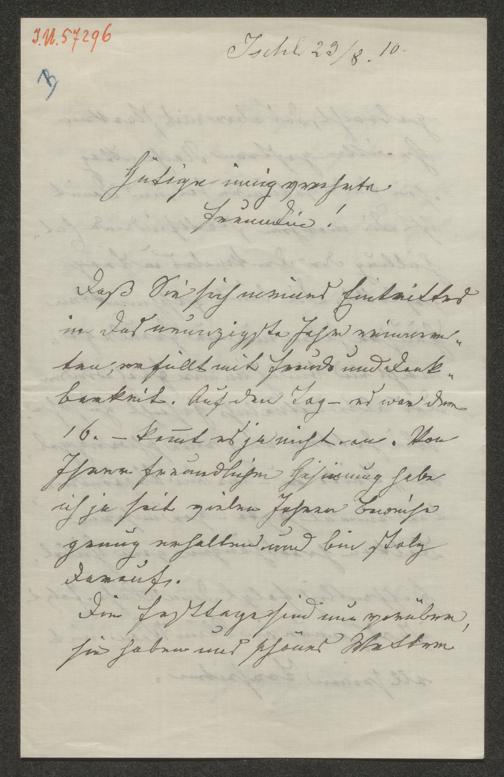 I.N. 57296
Ischl 23/8. 10.
Gütige innig verehrte
Freundin!
Daß Sie sich meines Eintrittes
in das neunzigste Jahr erinner-
ten, erfüllt mit Freude und Dank-
barkeit. Auf den Tag – es war der
16. – kommt es ja nicht an. Von
Ihrer freundlichen Gesinnung habe
ich ja seit vielen Jahren Beweise
genug erhalten und bin stolz
darauf.
Die Festtage sind nun vorüber,
sie haben uns schönes Wetter